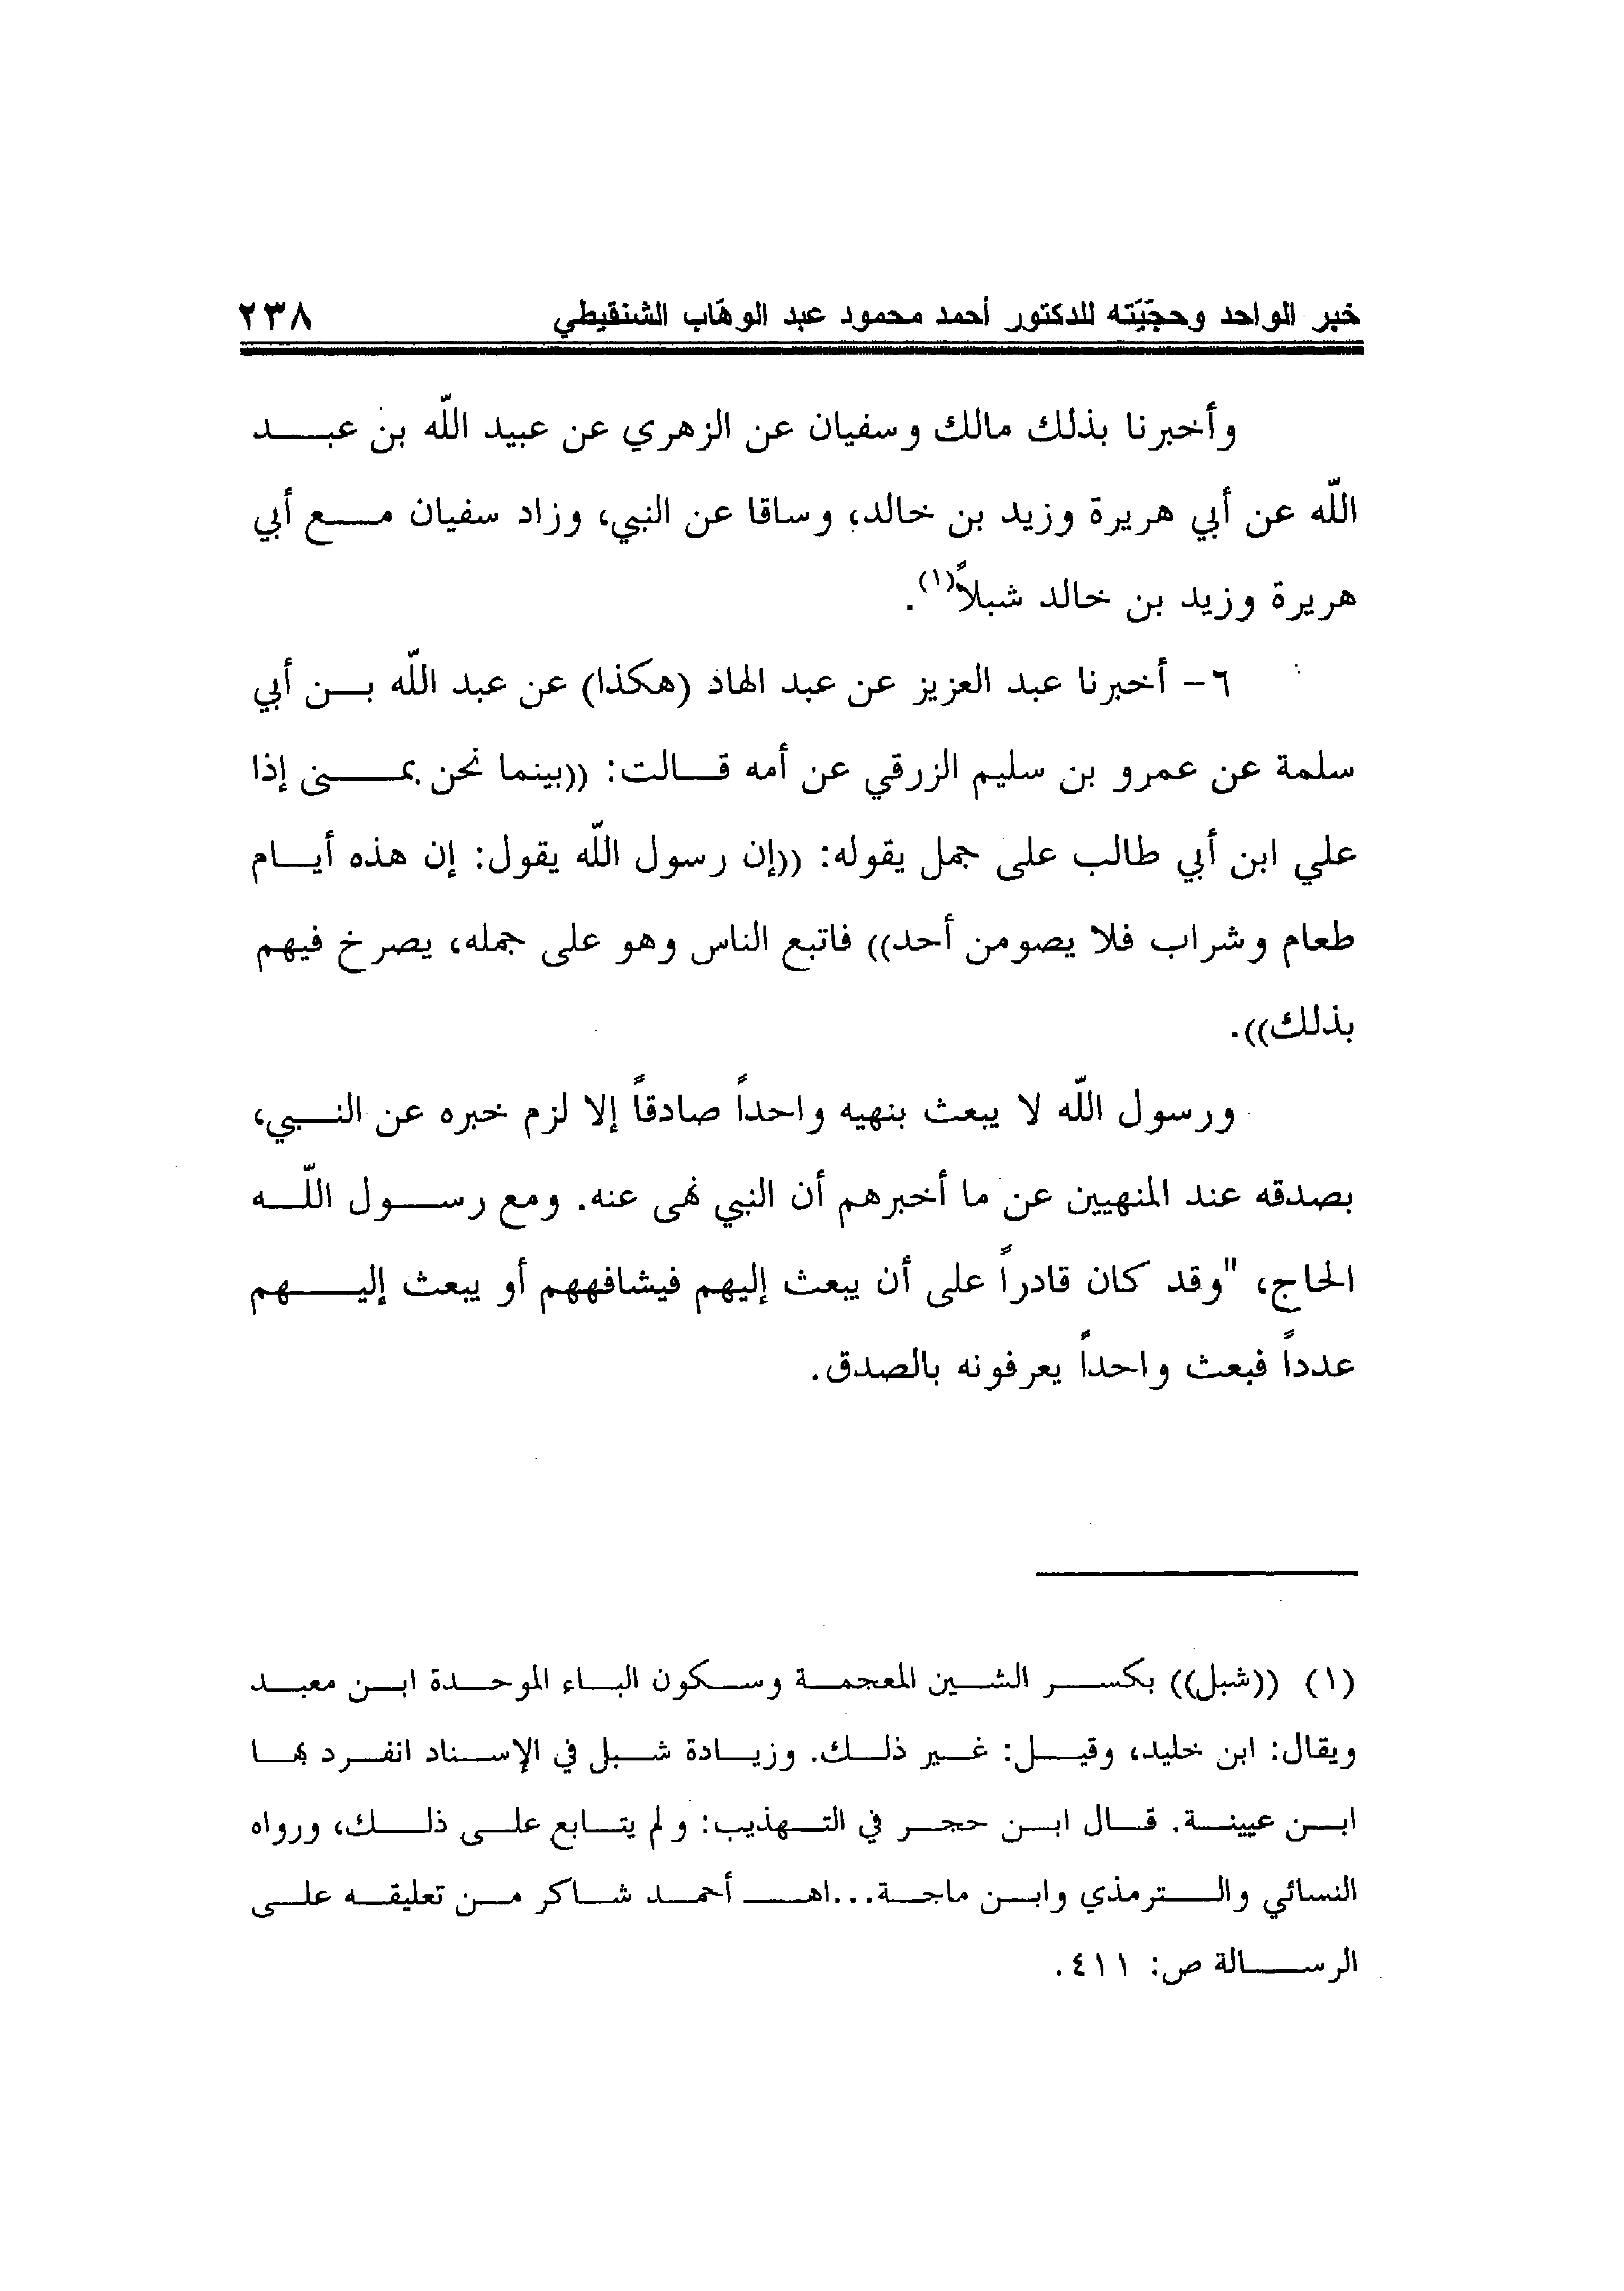 خبر الواحد وحجّيّته للدكتور أحمد محمود عبد الوهّاب الشنقيطي ٢٣٨
وأخبرنا بذلك مالك وسفيان عن الزهري عن عبيد اللّه بن عبد
اللّه عن أبي هريرة وزيد بن خالد، وساقا عن النبي، وزاد سفيان مع أبي
هريرة وزيد بن خالد شبلاً(١).
٦- أخبرنا عبد العزيز عن عبد الهاد (هكذا) عن عبد اللّه بن أبي
سلمة عن عمرو بن سليم الزرقي عن أمه قالت: ((بينما نحن بمنى إذا
علي ابن أبي طالب على جمل يقوله: ((إن رسول اللّه يقول: إن هذه أيام
طعام وشراب فلا يصومن أحد)) فاتبع الناس وهو على جمله، يصرخ فيهم
بذلك)).
ورسول اللّه لا يبعث بنهيه واحداً صادقاً إلا لزم خبره عن النبي،
بصدقه عند المنهيين عن ما أخبرهم أن النبي نهى عنه. ومع رسول اللّه
الحاج، "وقد كان قادراً على أن يبعث إليهم فيشافههم أو يبعث إليهم
عدداً فبعث واحداً يعرفونه بالصدق.
(١) ((شبل)) بكسر الشين المعجمة وسكون الباء الموحدة ابن معبد
ويقال: ابن خليد، وقيل: غير ذلك. وزيادة شبل في الإسناد انفرد بها
ابن عيينة. قال ابن حجر في التهذيب: ولم يتابع على ذلك، ورواه
النسائي والترمذي وابن ماجة...اهـ أحمد شاكر من تعليقه على
الرسالة ص: ٤١١.